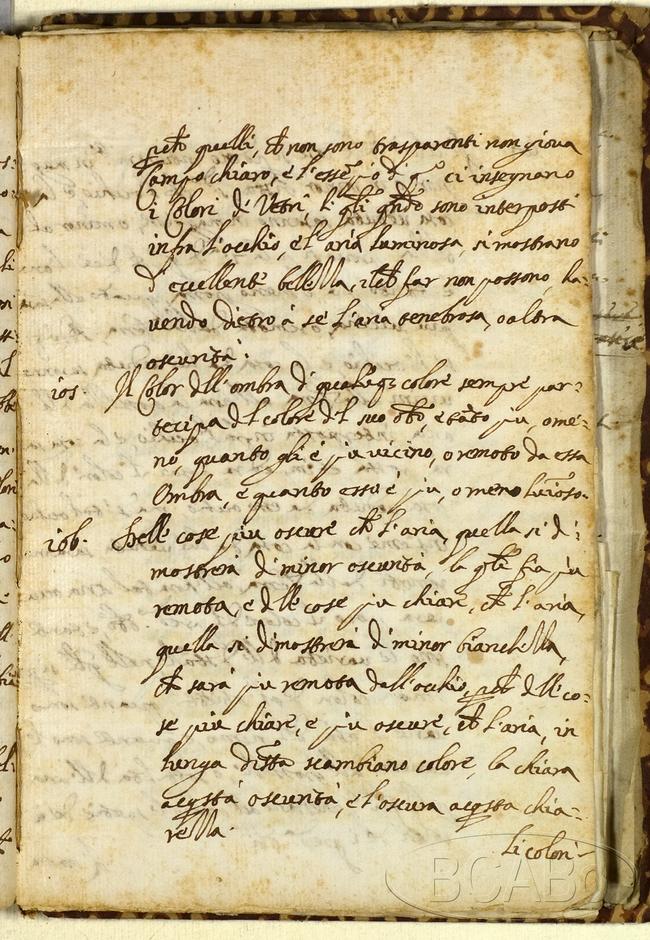 quelli, ch non sono trasparenti non giova
Campo chiaro, e l'esse ci insegnano
i Colori di Vetri, li qli qndo sono interposti
infra l'occhio, e l'aria luminosa, si mostrano
d'eccellente bellezza, ilch far non possono, ha-
vendo dietro à sé l'aria tenebrosa, o altra
oscurità:
105. Il Color dell'ombra di colore sempre par-
tecipa dl colore dl suo obto, e tāto piu, o me-
no, quanto gli è piu vicino, o remoto da essa
Ombra e quanto esso è piu, o meno luminoso.
106. Delle cose piu oscure ch l'aria, quella si di-
mostrerà di minor oscurità, la qle sia piu
remota, e dlle cose piu chiare, ch l'aria,
quella si dimostrerà di minor bianchezza,
ch sarà piu remota dall'occhio, dlle co-
se piu chiare, e piu oscure, ch l'aria, in
lunga dista scambiano colore, la chiara
acqsta oscurità, e l'oscura acqsta chia-
rezza.
Li colori
BCABo